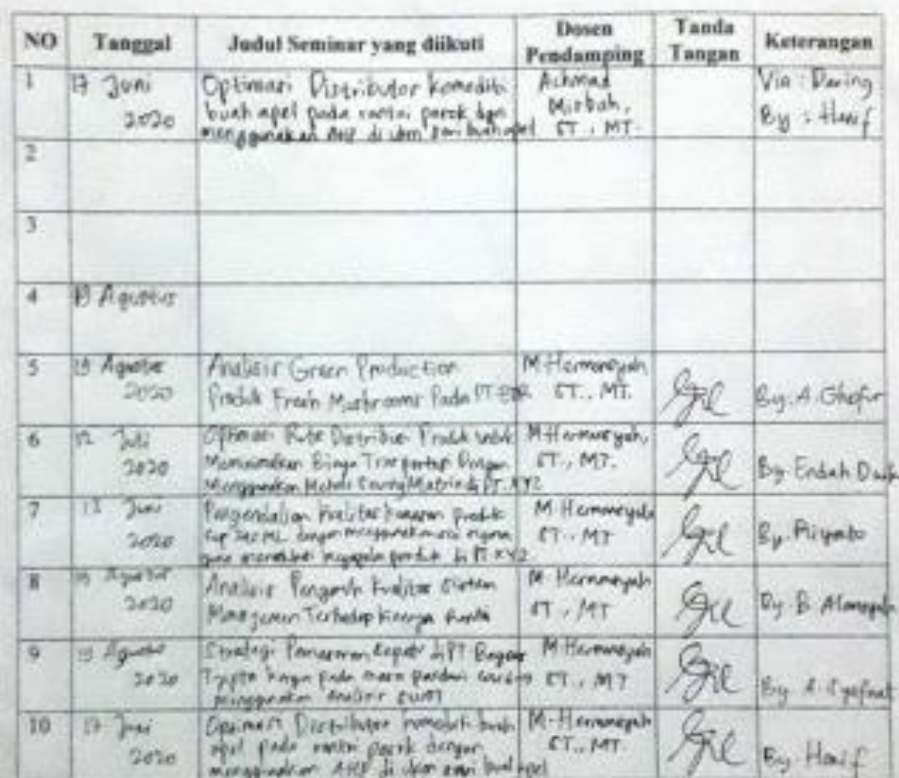 NO Tanggal Judul Seminar yang diikuti Dosen Pendamping Tanda Tangan Keterangan
1 17 Juni 2020
Optimasi Distributor komoditi
buah apel pada rantai pasok dgn
menggunakan AHP di ukm sari buah apel
Achmad
Misbah,
ST., MT.
Via : Daring
By : Hanif
2
3
4 19 Agustus
5 19 Agustus
2020
Analisis Green Production
Produk Fresh Mushrooms Pada PT
M Hermansyah
ST., MT.
By. A. Ghofur
6 12 Juli
2020
Optimasi Rute Distribusi Produk untuk
Meminimalkan Biaya Transportasi Dengan
Menggunakan Metode Saving Matrix di PT. XYZ
M Hermansyah,
ST., MT.
By. Endah
7 Juni
2020
Pengendalian kualitas kemasan produk
cup ML dengan
produk di PT XYZ
M Hermansyah
ST., MT
By. Riyanto
8 Agustus
2020
Analisis Pengaruh kualitas sistem
Manajemen Terhadap kinerja
M Hermansyah
ST., MT
By. B.
9 Agustus
2020
Strategi Pemasaran di PT
pada masa pandemi
menggunakan analisis SWOT
M Hermansyah
ST., MT
By. A. Syafaat
10 17 Juni
2020
Optimasi Distributor komoditi buah
apel pada rantai pasok dengan
menggunakan AHP di ukm sari buah apel
M. Hermansyah
ST., MT.
By. Hanif